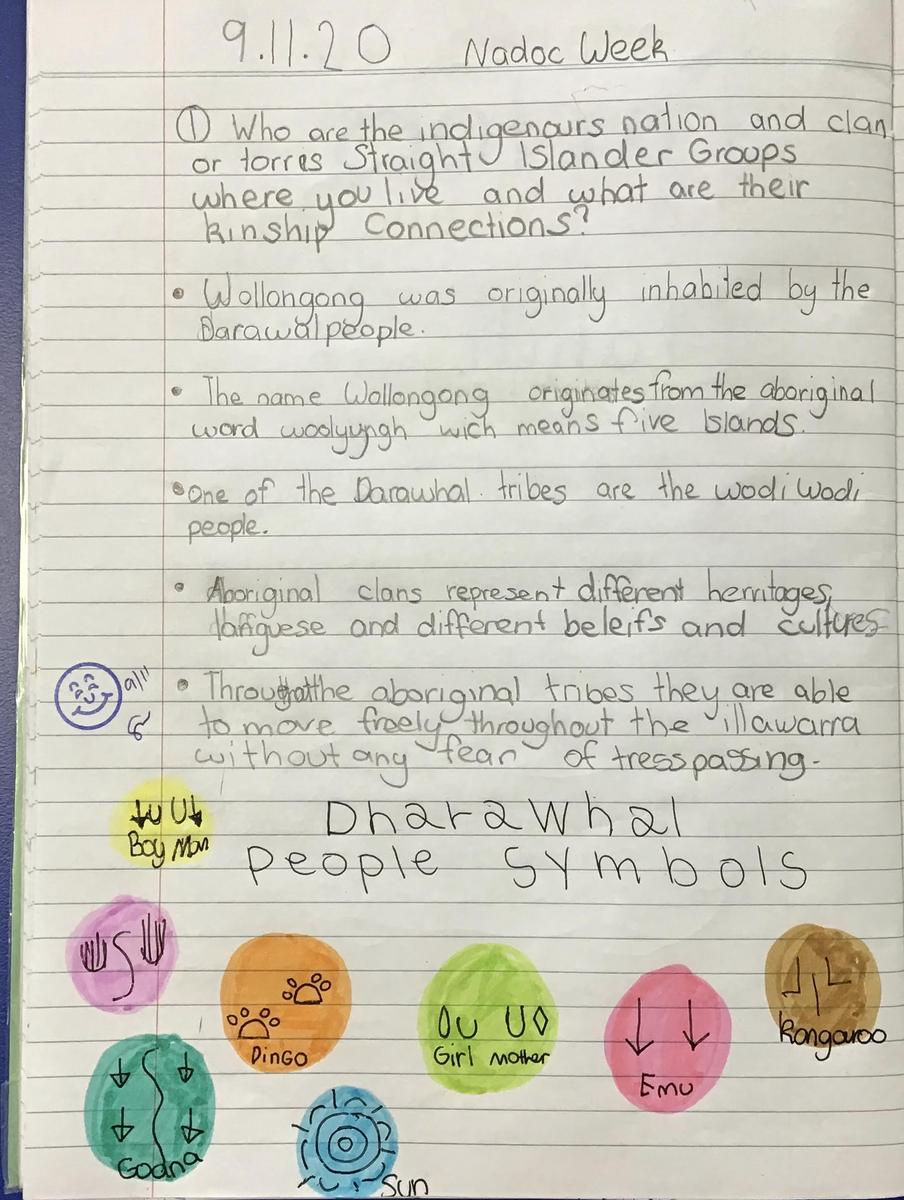 9.11.20 Nadoc Week
① Who are the indigenours nation and clan
or torres Straight Islander Groups
where you live and what are their
kinship Connections?
• Wollongong was originally inhabited by the
Darawal people.
• The name Wollongong originates from the aboriginal
word woolyungh wich means five Islands.
• One of the Darawhal tribes are the wodi Wodi
people.
• Aboriginal clans represent different herritages,
languese and different beleifs and cultures
• Throughout the aboriginal tribes they are able
to move freely throughout the illawarra
without any fear of tresspassing.
Boy Man
Dharawhal
People Symbols
Dingo
Girl Mother
Emu
Kangaroo
Goana
Sun